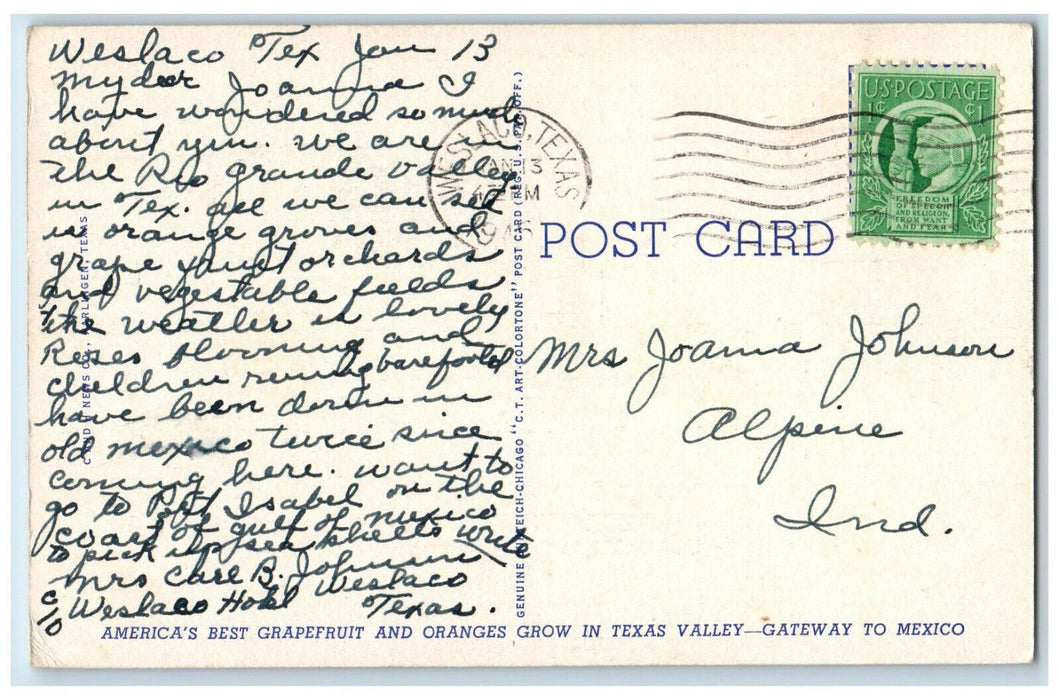 Weslaco Tex Jan 13
My dear Joanna I
have wondered so much
about you. we are in
the Rio grande valley
in Tex. all we can see
is orange groves and
grape fruit orchards
and vegetable fields
the weather is lovely
Roses blooming and
children runing barefooted
have been down in
old mexico twice since
coming here. want to
go to Port Isabel on the
coast of gulf of mexico
to pick up sea shells write
Mrs Carl B. Johnson
c/o Weslaco Hotel Weslaco
Texas.
GENUINE CURTEICH-CHICAGO "C.T. ART-COLORTONE" POST CARD (REG. U.S. PAT. OFF.)
WESLACO, TEXAS
JAN 13
PM
U.S. POSTAGE
1¢ ¢1
FREEDOM
OF SPEECH
AND RELIGION,
FROM WANT
AND FEAR
POST CARD
Mrs Joanna Johnson
Alpine
Ind.
AMERICA'S BEST GRAPEFRUIT AND ORANGES GROW IN TEXAS VALLEY—GATEWAY TO MEXICO
NEWS CO., HARLINGEN, TEXAS